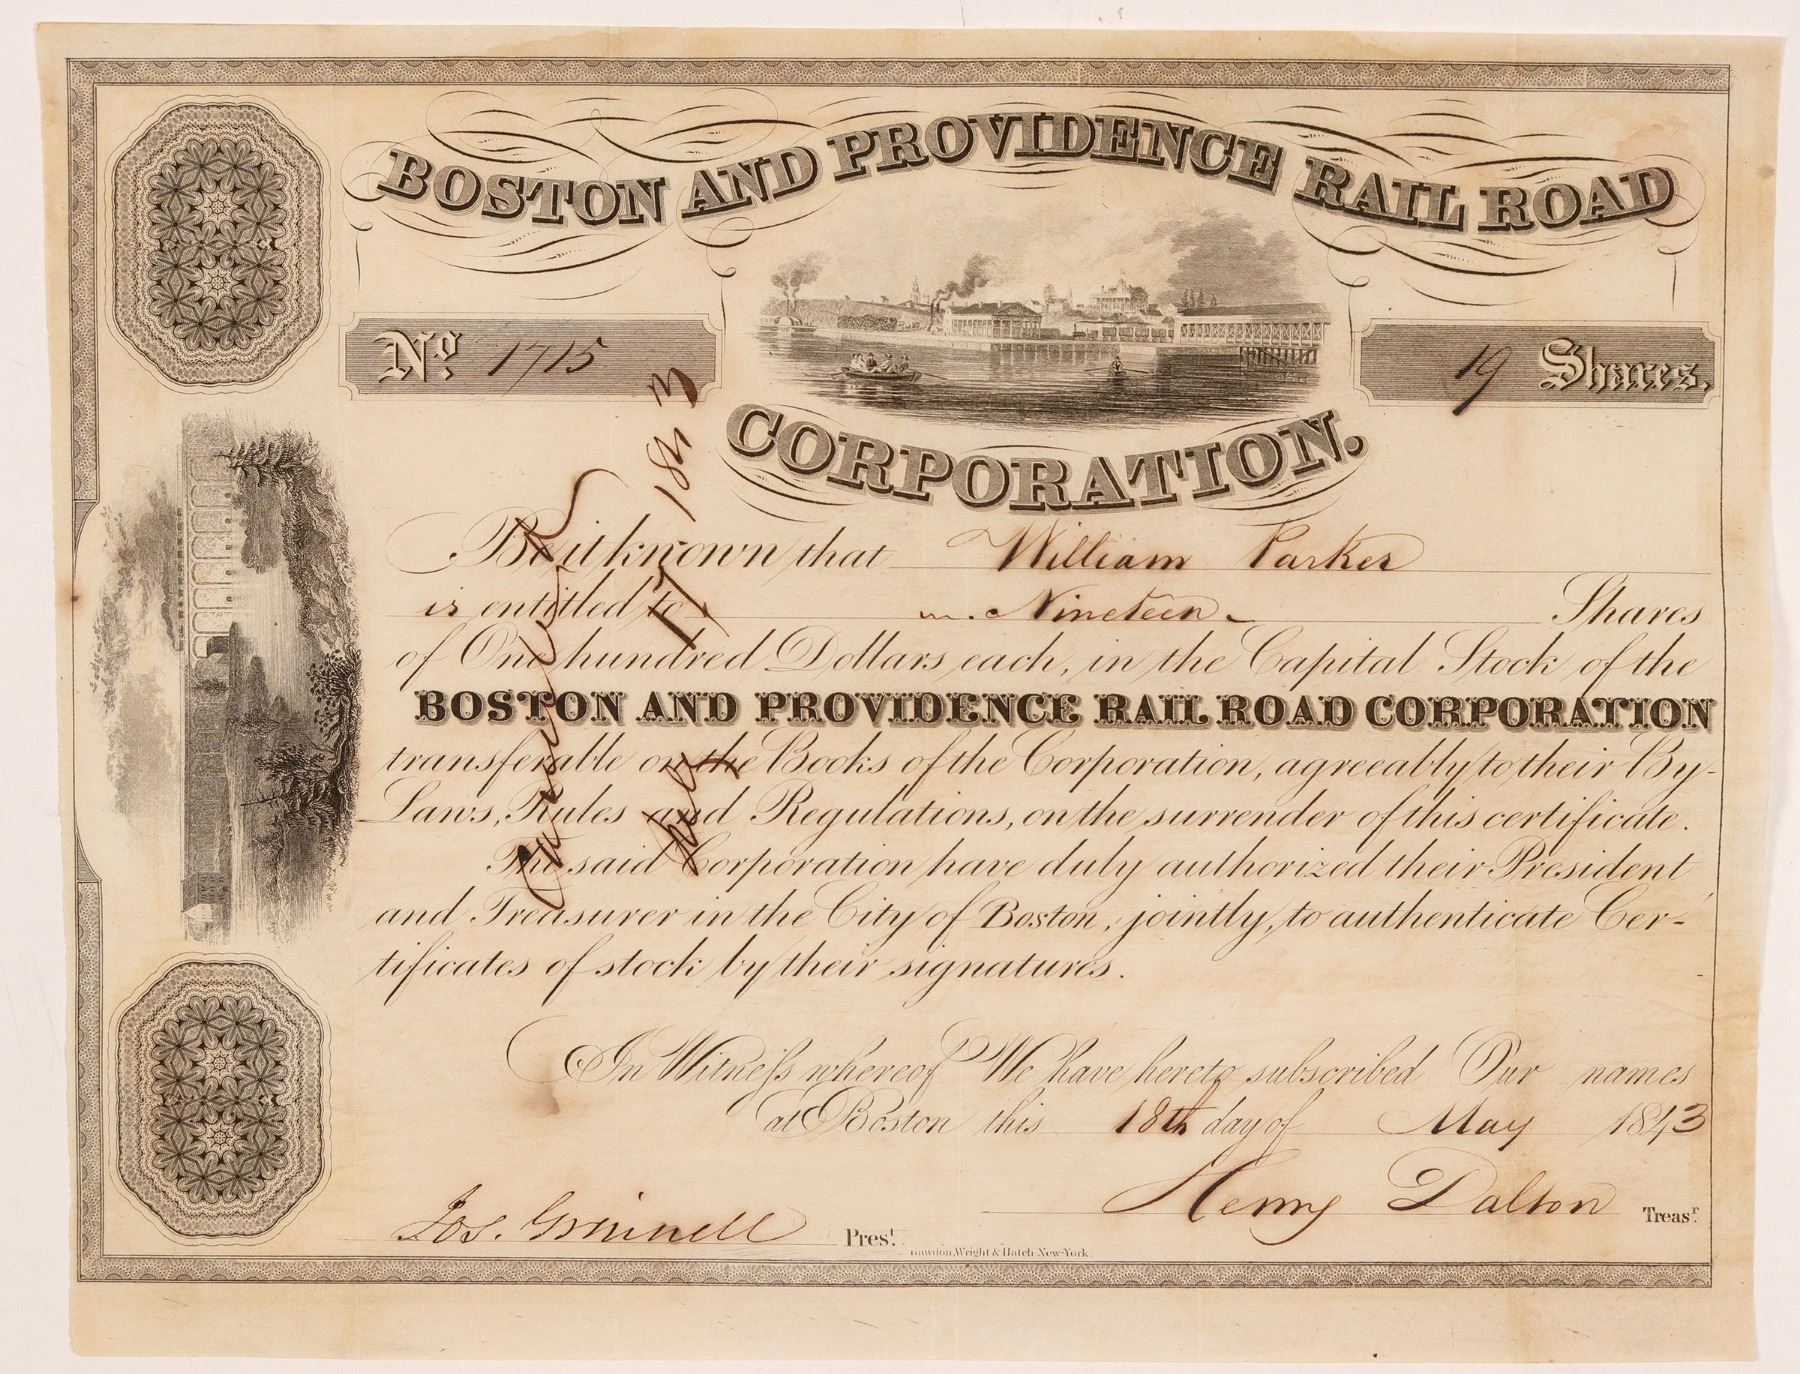 BOSTON AND PROVIDENCE RAIL ROAD
No. 1715
19 Shares.
CORPORATION.
Be it known that William Parker
is entitled to Nineteen Shares
of One hundred Dollars each, in the Capital Stock of the
BOSTON AND PROVIDENCE RAIL ROAD CORPORATION
transferable on the Books of the Corporation, agreeably to their By-
Laws, Rules and Regulations, on the surrender of this certificate.
The said Corporation have duly authorized their President
and Treasurer in the City of Boston, jointly, to authenticate Cer-
tificates of stock by their signatures.
In Witness whereof We have hereto subscribed Our names
at Boston this 18th day of May 1843
Henry Dalton Treasr.
Jos. Grinnell Prest.
Rawdon, Wright & Hatch New-York.
Cancelled
17 1843